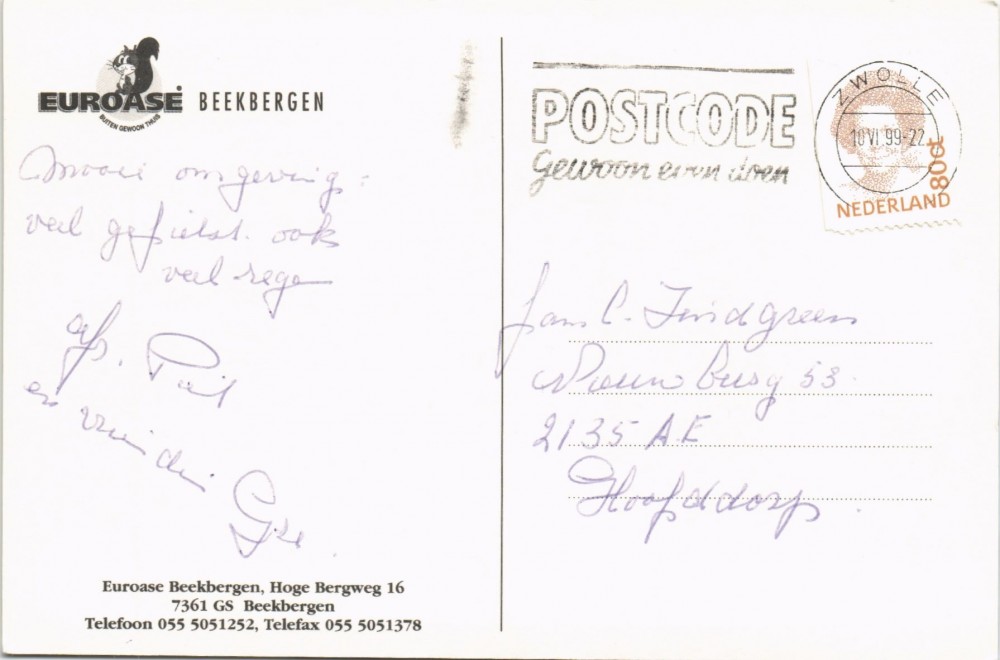 EUROASE BEEKBERGEN
BUITEN GEWOON THUIS
Mooie omgeving:
veel gefietst. ook
veel regen
Piet
en vriendin
POSTCODE
Gewoon even doen
ZWOLLE
10 VI 99-22
80ct
NEDERLAND
Jan C. Lindgreen
53
2135 AE
Hoofddorp.
Euroase Beekbergen, Hoge Bergweg 16
7361 GS Beekbergen
Telefoon 055 5051252, Telefax 055 5051378